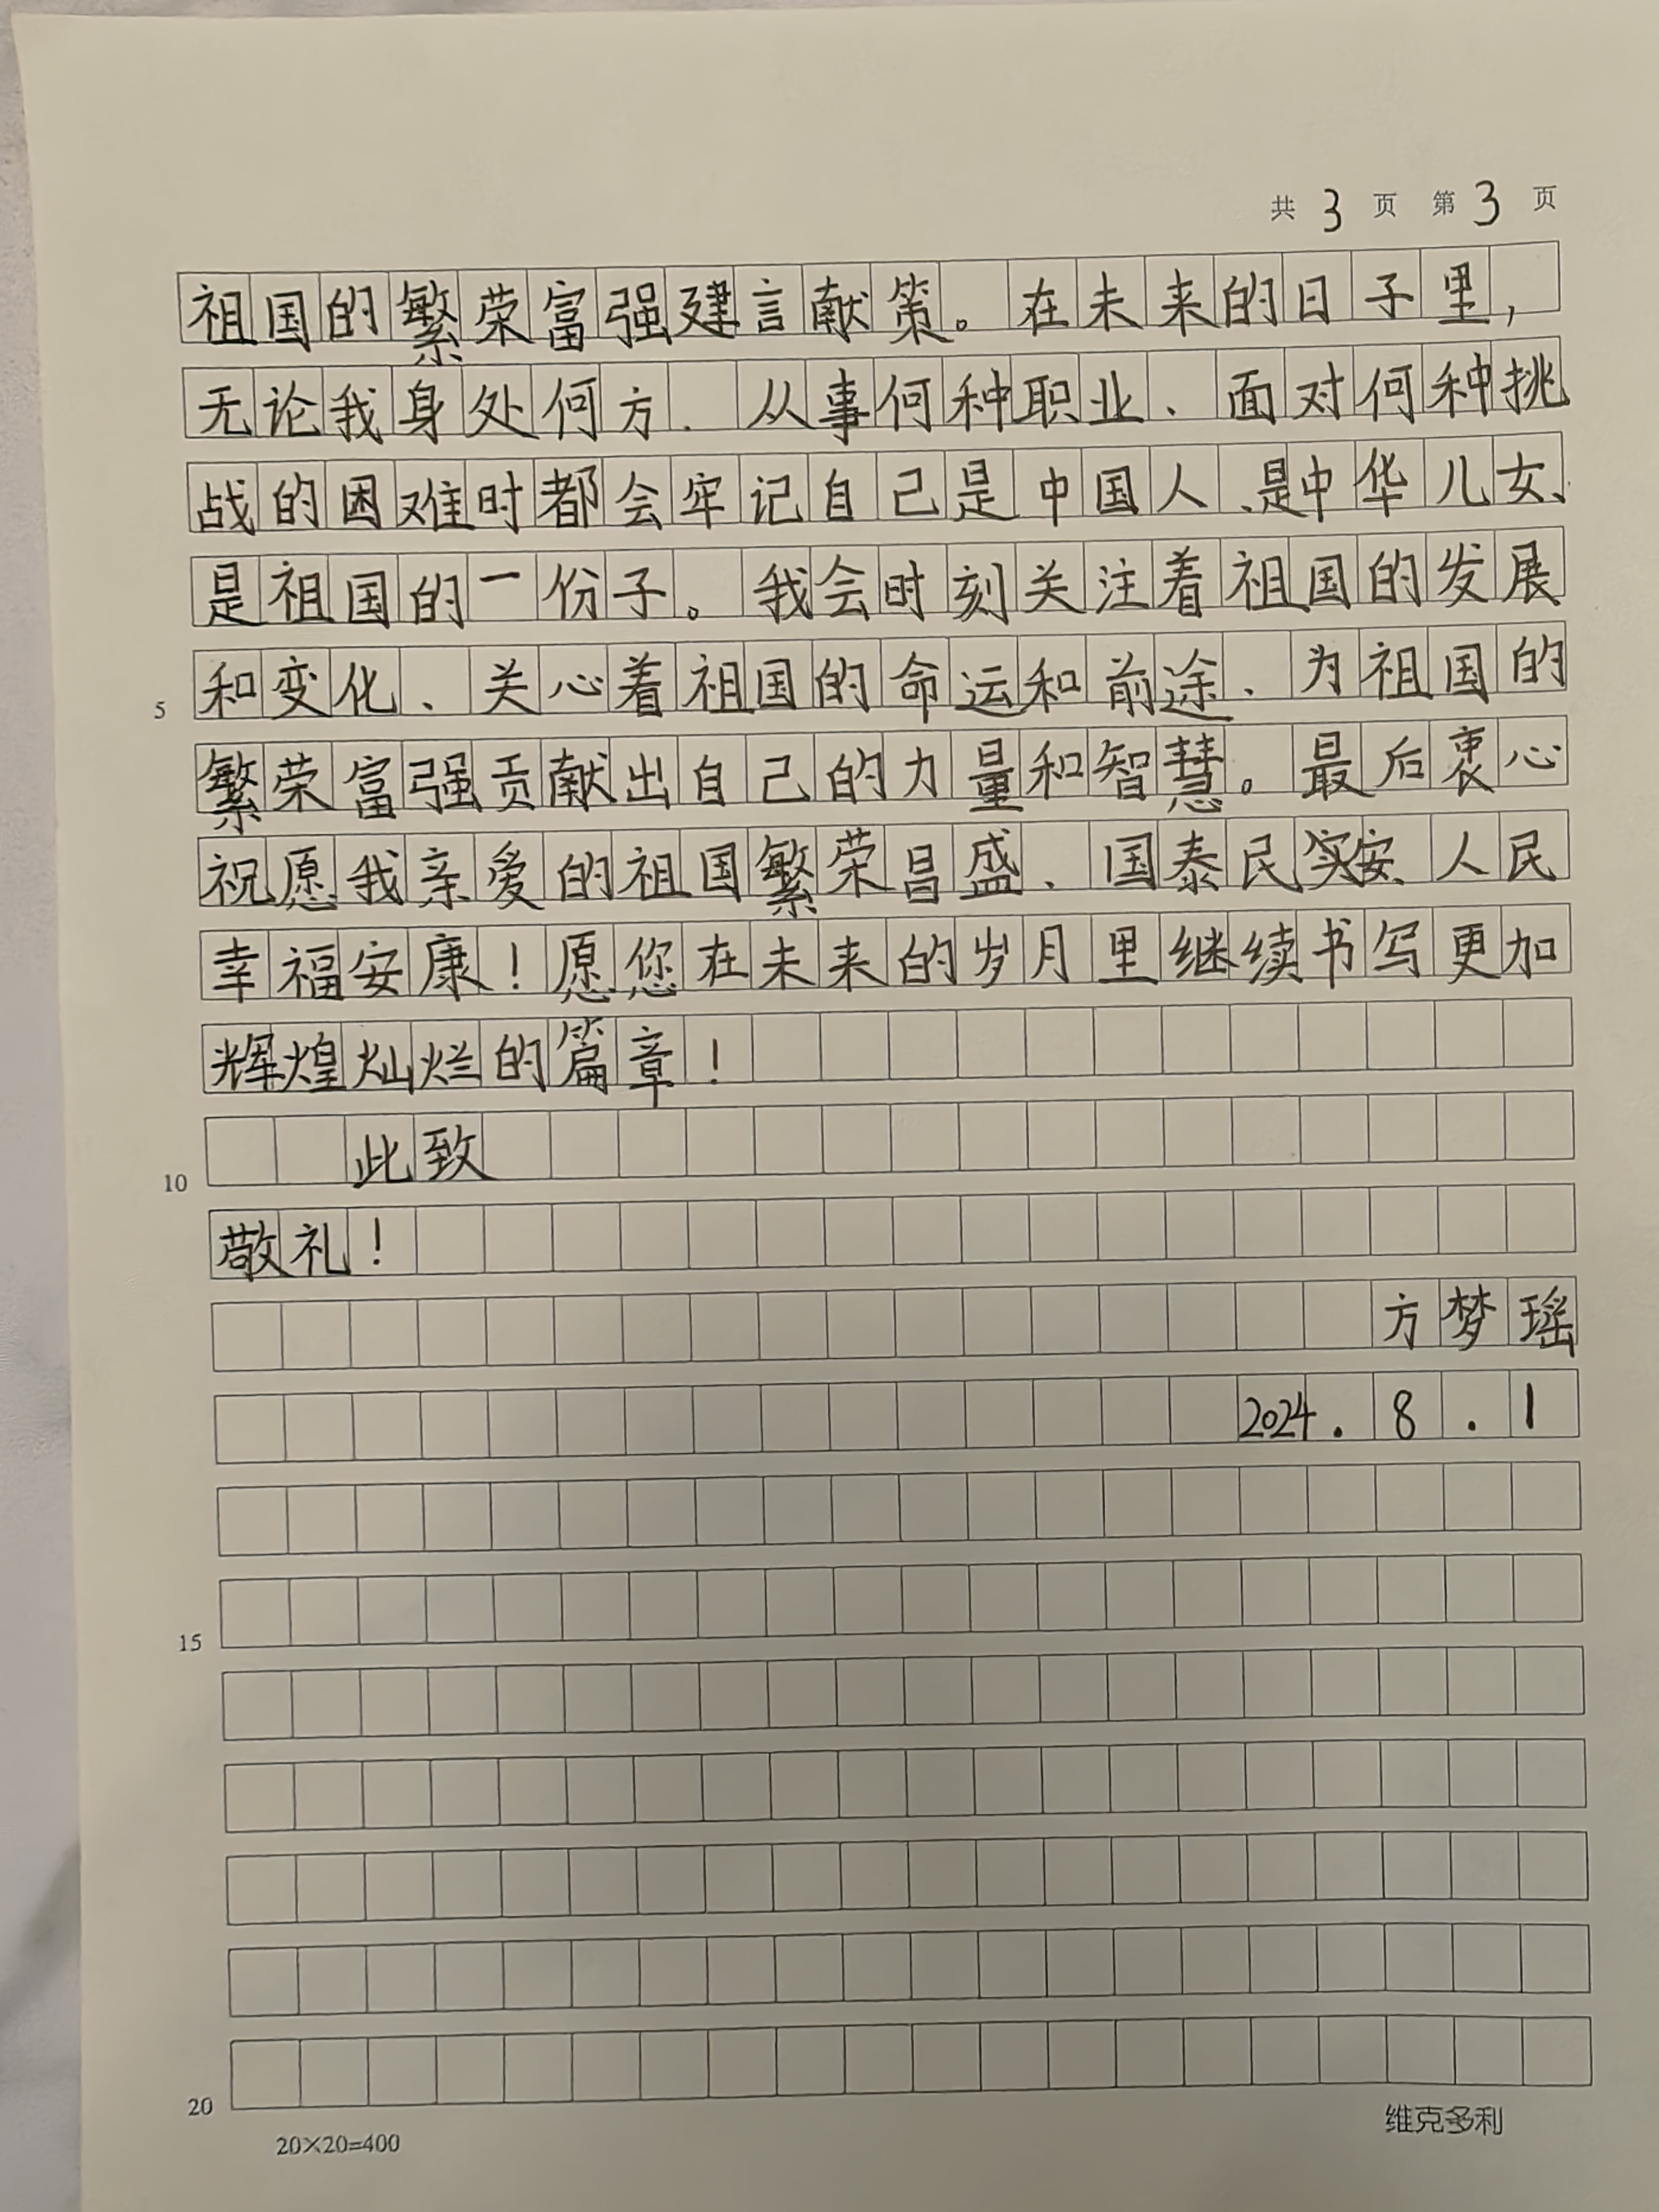 共 3 页 第 3 页
祖国的繁荣富强建言献策。在未来的日子里，
无论我身处何方、从事何种职业、面对何种挑
战的困难时都会牢记自己是中国人、是中华儿女、
是祖国的一份子。我会时刻关注着祖国的发展
和变化、关心着祖国的命运和前途、为祖国的
5
繁荣富强贡献出自己的力量和智慧。最后衷心
祝愿我亲爱的祖国繁荣昌盛、国泰民安、人民
幸福安康！愿您在未来的岁月里继续书写更加
辉煌灿烂的篇章！
此致
10
敬礼！
方梦瑶
2024.8.1
15
20
20×20=400
维克多利